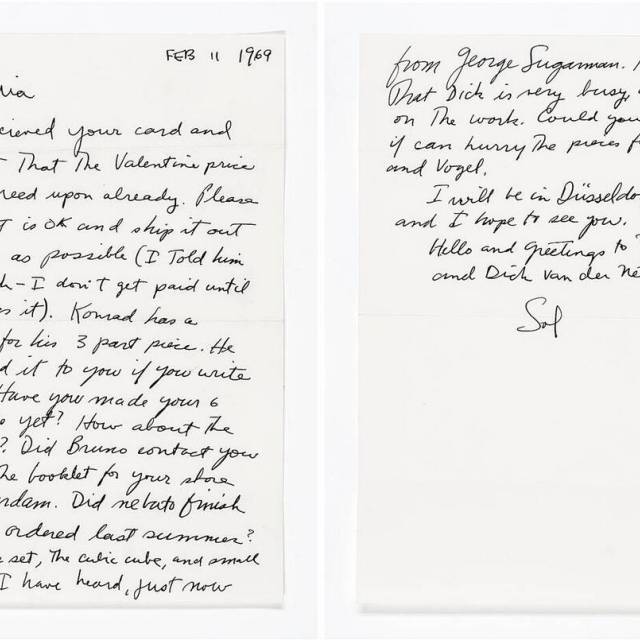 FEB 11 1969
ia
cieved your card and
That The Valentine price
reed upon already. Please
T is OK and ship it out
as possible (I Told him
h - I don't get paid until
s it). Konrad has a
for his 3 part piece. He
d it to you if you write
Have you made your 6
yet? How about the
? Did Bruno contact you
he booklet for your show
rdam. Did nebato finish
ordered last summer?
set, The cubic cube, and small
I have heard, just now
from George Sugarman.
That Dick is very busy,
on The work. Could you
if can hurry The pieces f
and Vogel.
I will be in Düsseldo
and I hope to see you.
Hello and greetings to
and Dick van der Ne
Sol